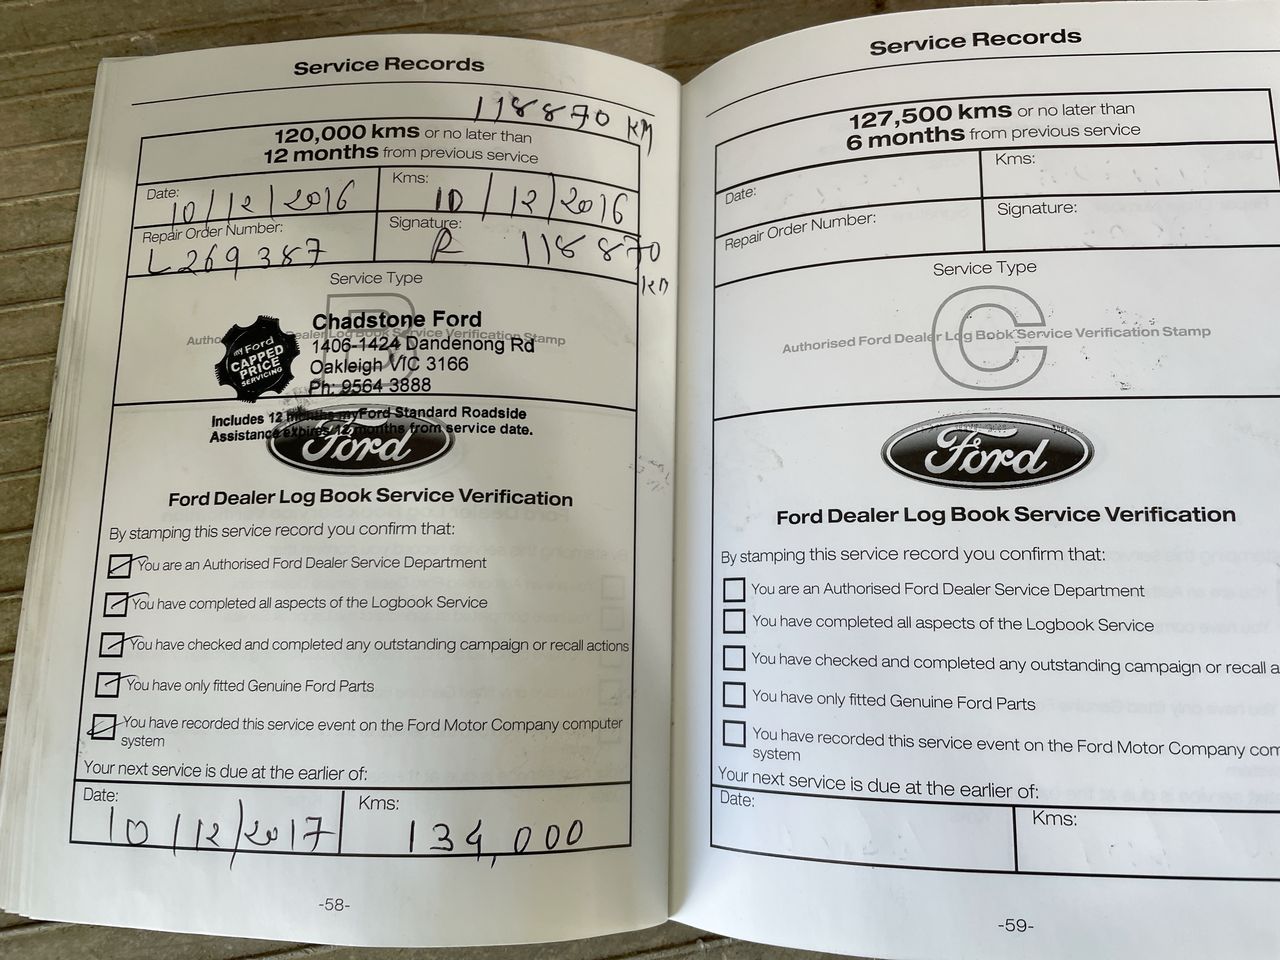 Service Records
118870 KM
120,000 kms or no later than
12 months from previous service
Date: 10/12/2016
Kms: 10/12/2016
Repair Order Number: L269387
Signature: R 118870 KM
Service Type
B
Authorised Ford Dealer Log Book Service Verification Stamp
my Ford
CAPPED
PRICE
SERVICING
Chadstone Ford
1406-1424 Dandenong Rd
Oakleigh VIC 3166
Ph: 9564 3888
Includes 12 months myFord Standard Roadside
Assistance expires 12 months from service date.
Ford
Ford Dealer Log Book Service Verification
By stamping this service record you confirm that:
You are an Authorised Ford Dealer Service Department
You have completed all aspects of the Logbook Service
You have checked and completed any outstanding campaign or recall actions
You have only fitted Genuine Ford Parts
You have recorded this service event on the Ford Motor Company computer
system
Your next service is due at the earlier of:
Date: 10/12/2017
Kms: 134,000
-58-
Service Records
127,500 kms or no later than
6 months from previous service
Date:
Kms:
Repair Order Number:
Signature:
Service Type
C
Authorised Ford Dealer Log Book Service Verification Stamp
Ford
Ford Dealer Log Book Service Verification
By stamping this service record you confirm that:
You are an Authorised Ford Dealer Service Department
You have completed all aspects of the Logbook Service
You have checked and completed any outstanding campaign or recall a
You have only fitted Genuine Ford Parts
You have recorded this service event on the Ford Motor Company com
system
Your next service is due at the earlier of:
Date:
Kms:
-59-